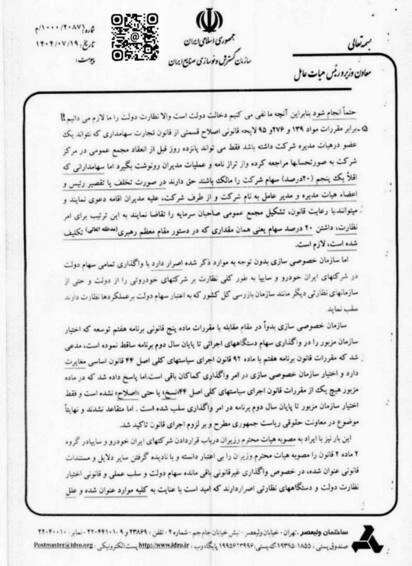 بسمه‌تعالی
جمهوری اسلامی ایران
سازمان گسترش و نوسازی صنایع ایران
معاون وزیر و رئیس هیات عامل
شماره: ۲۰۸۷/۱۰۰۰/م
تاریخ: ۱۴۰۴/۰۷/۱۹
پیوست:
حتماً انجام شود بنابراین آنچه ما نفی می کنیم دخالت دولت است والا نظارت دولت را ما لازم می دانیم !!
۵- برابر مقررات مواد ۱۳۹ و ۲۷۶ و ۹۵ لایحه قانونی اصلاح قسمتی از قانون تجارت سهامداری که نتواند یک
عضو در هیات مدیره شرکت داشته باشد فقط می تواند پانزده روز قبل از انعقاد مجمع عمومی در مرکز
شرکت به صورتحسابها مراجعه کرده و از تراز نامه و عملیات مدیران رونوشت بگیرد اما سهامدارانی که
اقلاً یک پنجم (۲۰درصد) سهام شرکت را مالک باشند حق دارند در صورت تخلف یا تقصیر رئیس و
اعضاء هیات مدیره و مدیر عامل به نام شرکت و از طرف شرکت، علیه مدیران اقامه دعوی نمایند و
میتوانند با رعایت قانون، تشکیل مجمع عمومی صاحبان سرمایه را تقاضا نمایند به این ترتیب برای امر
نظارت، داشتن ۲۰ درصد سهام یعنی همان مقداری که در دستور مقام معظم رهبری (مدظله العالی) تکلیف
شده است، لازم است.
اما سازمان خصوصی سازی بدون توجه به موارد ذکر شده اصرار دارد با واگذاری تمامی سهام دولت
در شرکتهای ایران خودرو و سایپا به طور کلی نظارت بر شرکتهای خودروئی را از دولت و حتی از
سازمانهای نظارتی دیگر مانند سازمان بازرسی کل کشور که به اعتبار سهام دولت بر عملکردها نظارت دارند
سلب نماید
سازمان خصوصی سازی بدواً در مقام مقابله با مقررات ماده پنج قانونی برنامه هفتم توسعه که اختیار
سازمان مزبور را در واگذاری سهام دستگاههای اجرائی تا پایان سال دوم برنامه ساقط نموده است، مدعی
شد که مقررات قانون برنامه هفتم با ماده ۹۲ قانون اجرای سیاستهای کلی اصل ۴۴ قانون اساسی مغایرت
دارد و اختیار سازمان خصوصی سازی در امر واگذاری کماکان باقی است. اما پاسخ داده شد که در ماده
مزبور هیچ یک از مقررات قانون اجرای سیاستهای کلی اصل ۴۴ «نسخ» یا حتی «اصلاح» نشده است و فقط
اختیار سازمان مزبور تا پایان سال دوم برنامه در امر واگذاری سلب شده است . اما متقاعد نشدند و نهایتاً
موضوع در معاونت حقوقی ریاست جمهوری مطرح و بر لزوم اجرای قانون تاکید شد.
این بار نیز با ایراد به مصوبه هیات محترم وزیران در باب قرار دادن شرکتهای ایران خودرو و سایپا در گروه
۲ ماده ۲ قانون را مصوبه هیات محترم وزیران را بی اعتبار دانسته و با نادیده گرفتن سایر دلایل و مستندات
قانونی عنوان شده، در خصوص واگذاری غیرقانونی باقی مانده سهام دولت و سلب عملی و قانونی اختیار
نظارت دولت و دستگاههای نظارتی اصرار دارند که امید است با عنایت به کلیه موارد عنوان شده و علل
ساختمان ولیعصر: تهران - خیابان ولیعصر - نبش خیابان جام جم - شماره ۲ - تلفن: ۲۳۸۶۹ و ۹-۲۲۰۴۴۱۰۱ نمابر: ۲۲۰۴۰۰۱۰
صندوق پستی: ۱۸۵۵-۱۹۳۹۵ کد پستی: ۱۹۹۵۶۱۳۹۹۶ پایگاه وب: http://www.idro.ir پست الکترونیکی: Postmaster@idro.org